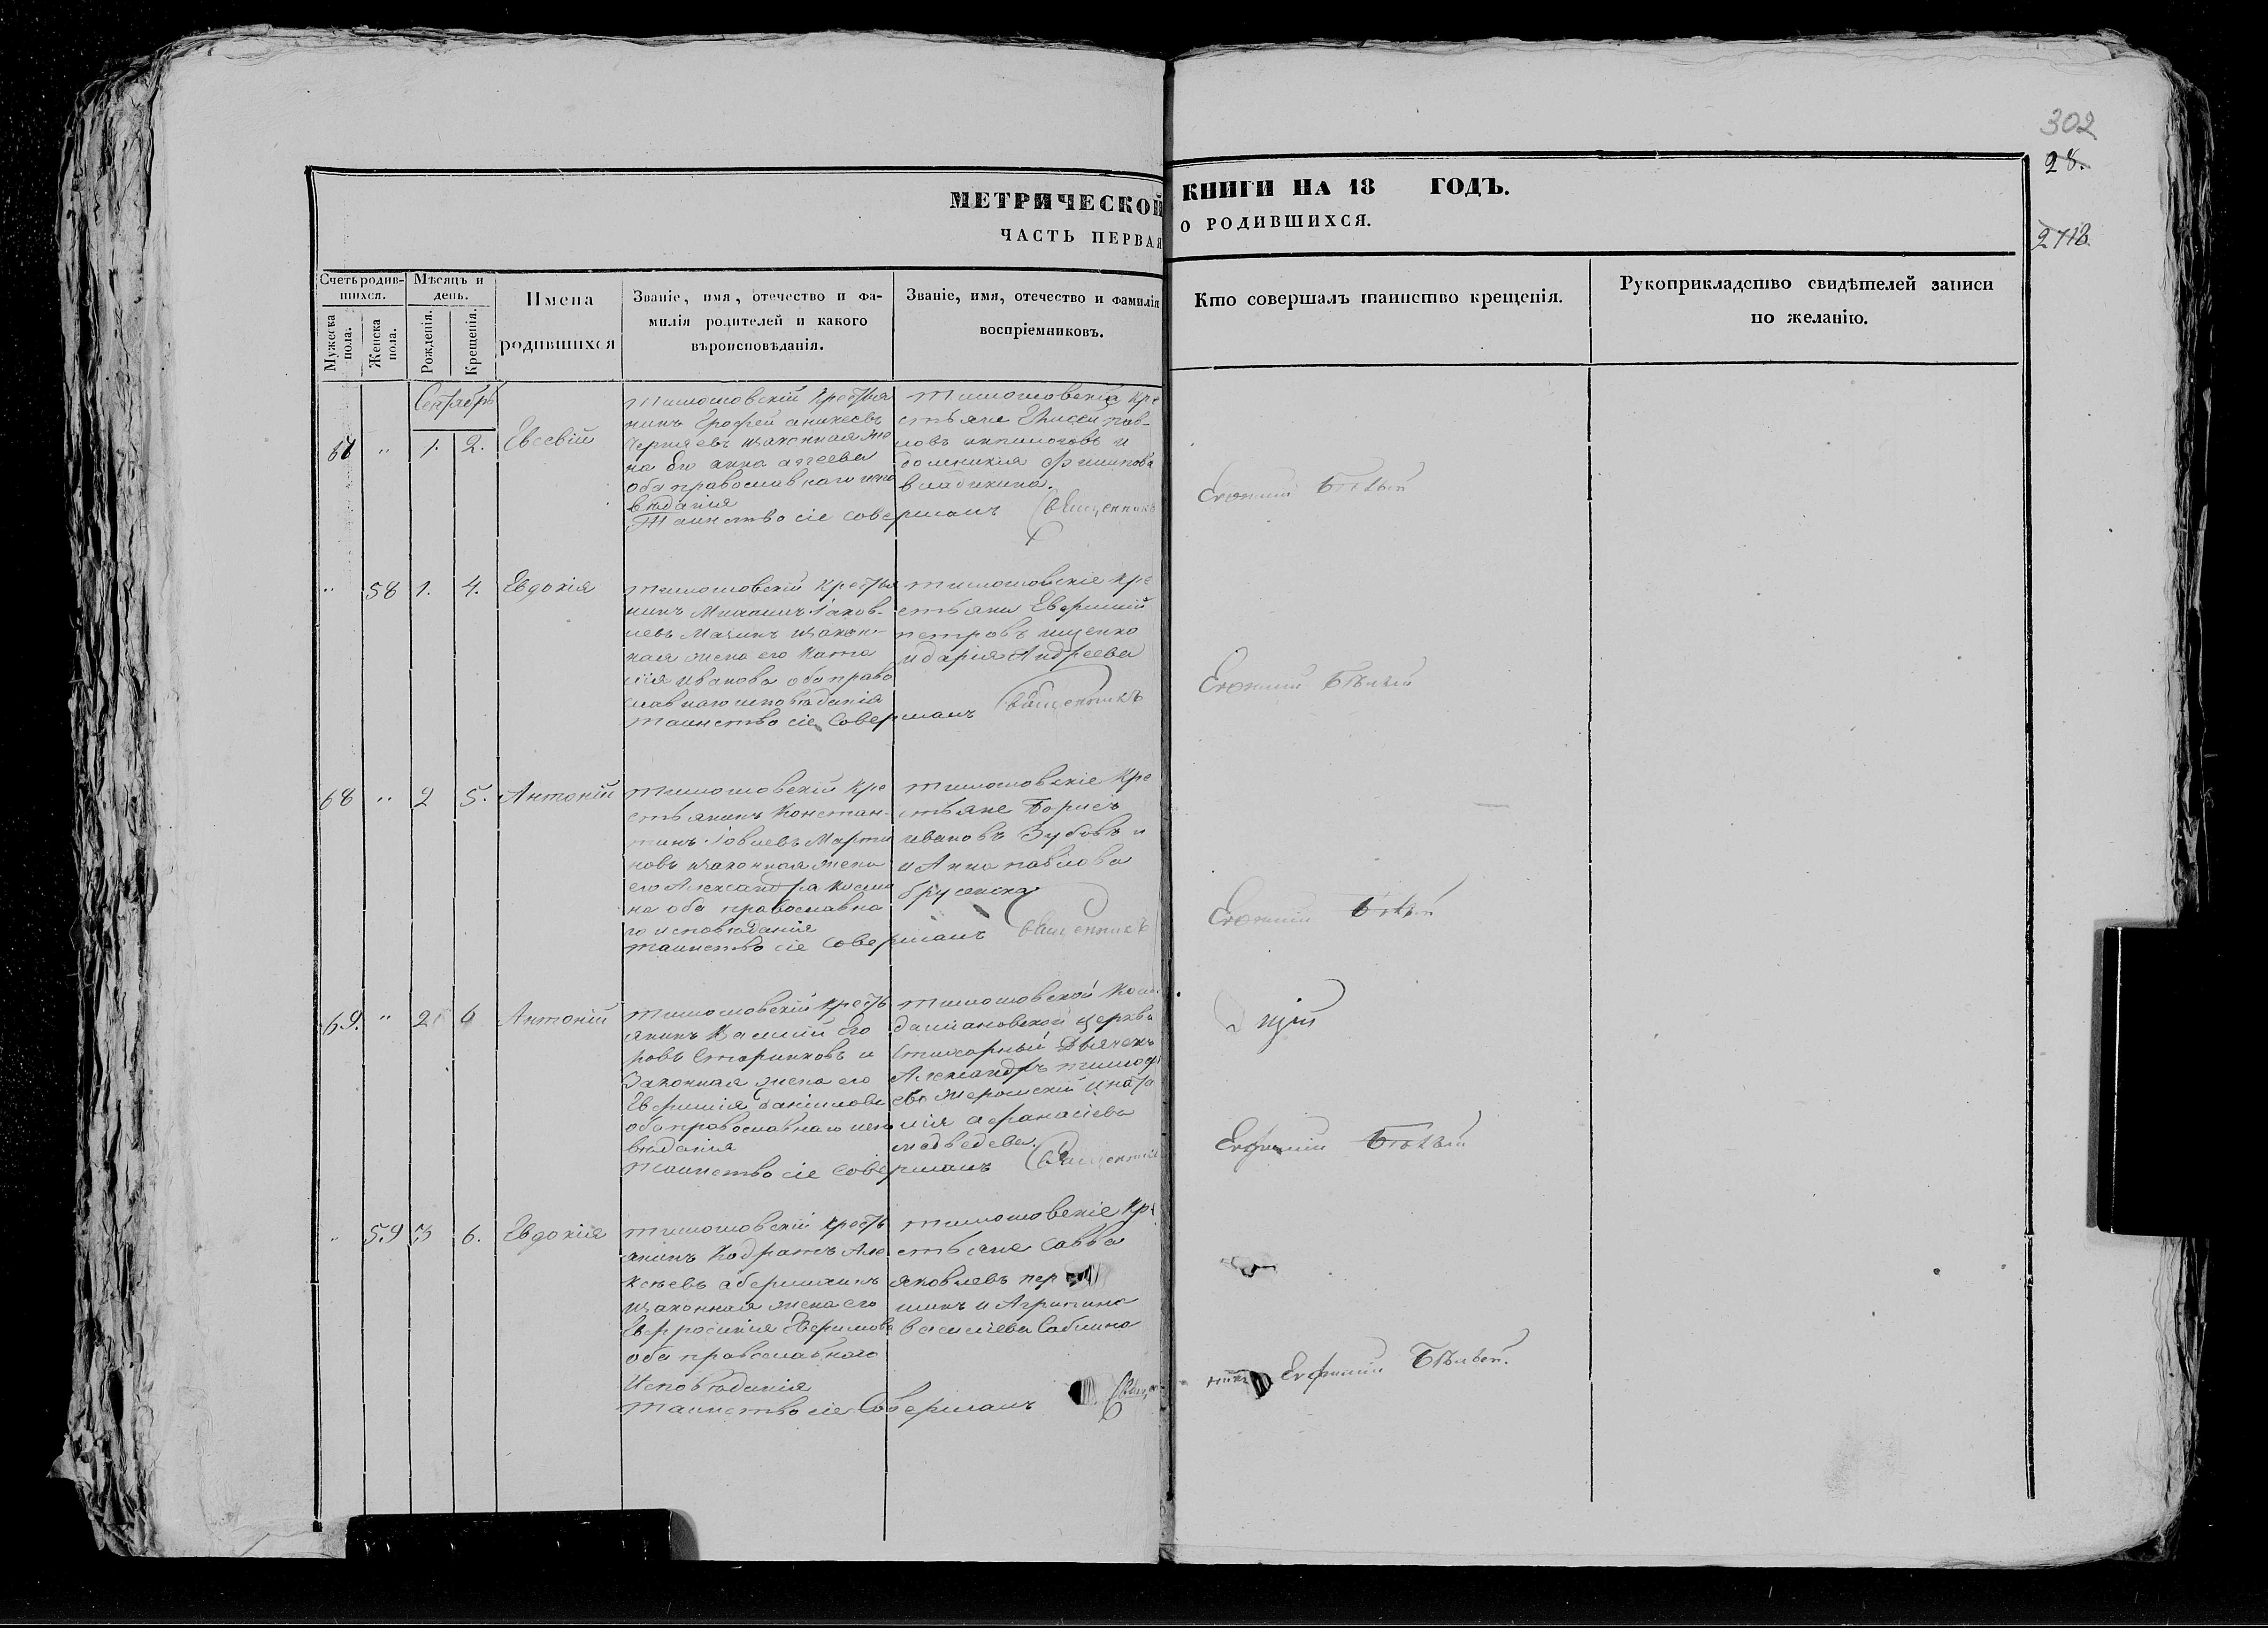 302
28.
2718
МЕТРИЧЕСКОЙ КНИГИ НА 18 ГОДЪ.
ЧАСТЬ ПЕРВАЯ О РОДИВШИХСЯ.
Счетъ родив-
шихся.
Мужеска пола.
Женска пола.
Мѣсяцъ и
день.
Рожденія.
Крещенія.
Имена
родившихся
Званіе, имя, отечество и фа-
милія родителей и какого
вѣроисповѣданія.
Званіе, имя, отечество и фамилія
воспріемниковъ.
Кто совершалъ таинство крещенія.
Рукоприкладство свидѣтелей записи
по желанію.
Сентябрь
" 1. 2. Евсевій
Тимошовскій крестья
нинъ Ерофей аникеевъ
Черняевъ изаконная же
на его анна
оба православнаго испо
вѣданія
Тимошовскіе кре
стьяне
и
Филипова
Таинство сіе совершалъ Священникъ
Евфимій Бѣлый
" 58 1. 4. Евдокія
тимошовскій крестья
нинъ Михаилъ Іаков-
левъ Мачинъ изакон-
ная жена его Ката
Иванова оба право
славнаго исповѣданія
тимошовскіе кре
стьяне Евфимій
петровъ ищенко
и дарія Андреева
таинство сіе Совершалъ Священникъ
Евфимій Бѣлый
68 " 2 5. Антоній
тимошовскій кре
стьянинъ Констан-
тинъ Іовлевъ Марти
новъ изаконная жена
его Александра Косми
на оба православна
го исповѣданія
тимошовскіе кре
стьяне Борисъ
ивановъ Зубовъ и
и Анна павлова
таинство сіе совершалъ Священникъ
Евфимій Бѣлый
69. " 2 6 Антоній
тимошовскій кресть
янинъ Его
ровъ Стариковъ и
Законная жена его
Евфимія даніилова
оба православнаго испо
вѣданія
тимошовской Косма
даміановской церкви
Стихарный Дьячекъ
Александръ тимоф
афанасіева
медведева.
таинство сіе совершалъ Священникъ
Евфимій Бѣлый
" 59 3 6. Евдокія
тимошовскій кресть
янинъ Кодратъ Але
ксѣевъ
изаконная жена его
Евфросинія Ефимова
оба православнаго
Исповѣданія
тимошовскіе кре
стьяне Савва
яковлевъ пер
шинъ и Агрипина
василіева Саблина
таинство сіе Совершалъ Свящ
никъ Евфимій Бѣлый.